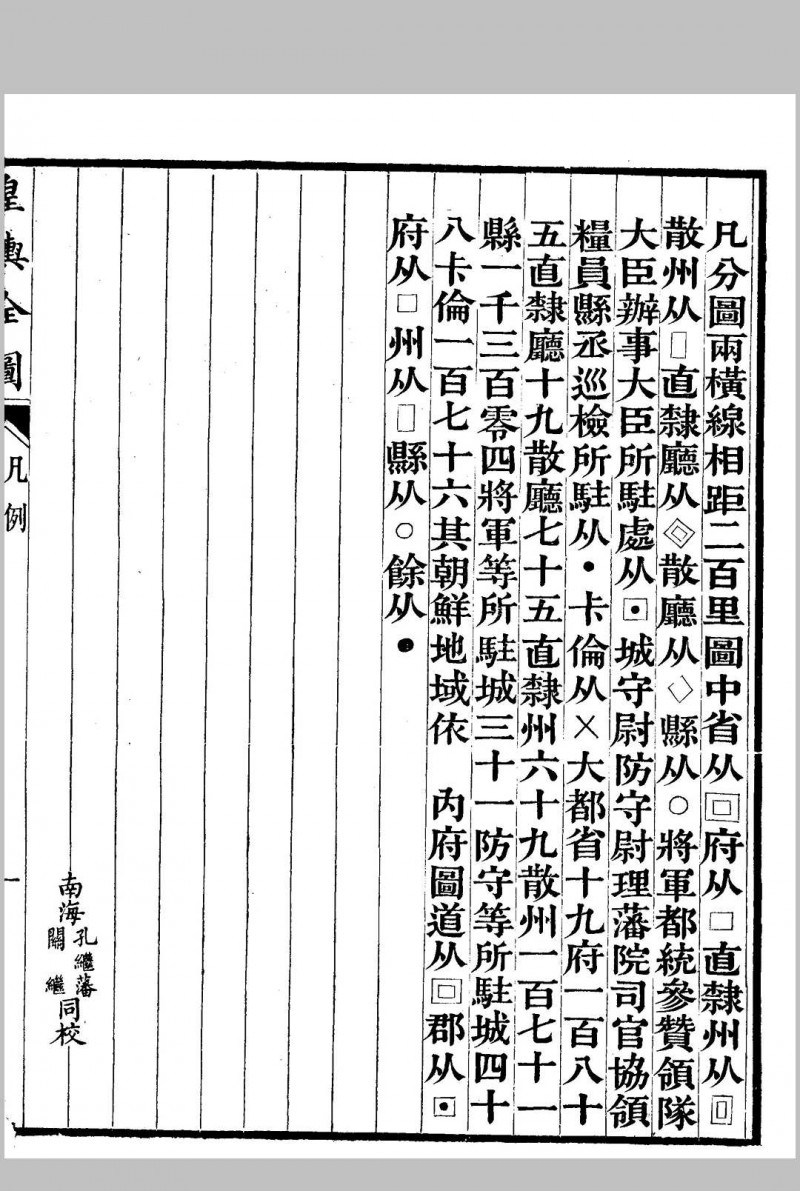 凡分圖兩橫線相距二百里圖中省从回府从□直隸州从▯
散州从▯直隸廳从◈散廳从◇縣从○將軍都統參贊領隊
大臣辦事大臣所駐處从⊡城守尉防守尉理藩院司官協領
糧員縣丞巡檢所駐从•卡倫从×大都省十九府一百八十
五直隸廳十九散廳七十五直隸州六十九散州一百七十一
縣一千三百零四將軍等所駐城三十一防守等所駐城四十
八卡倫一百七十六其朝鮮地域依　內府圖道从回郡从⊡
府从□州从▯縣从○餘从●
南海孔繼藩關繼同校
皇輿全圖
凡例
一